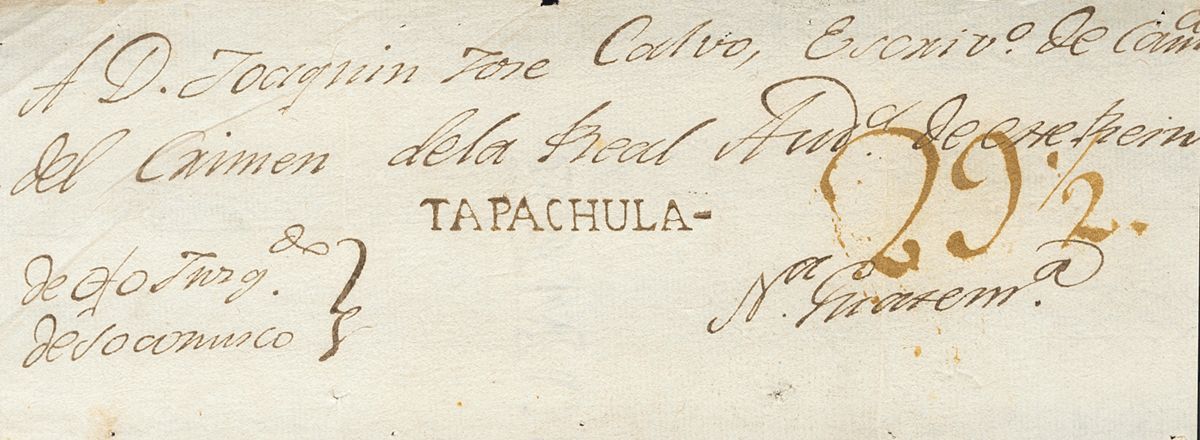 A D. Joaquin Jose Calvo, Escriv.º de Cam
del Crimen de la Real Aud.ª de este Rein
29 1/2.
TAPACHULA-
de ofo Juzg.do
de Soconusco
N.ª Guatem.ª